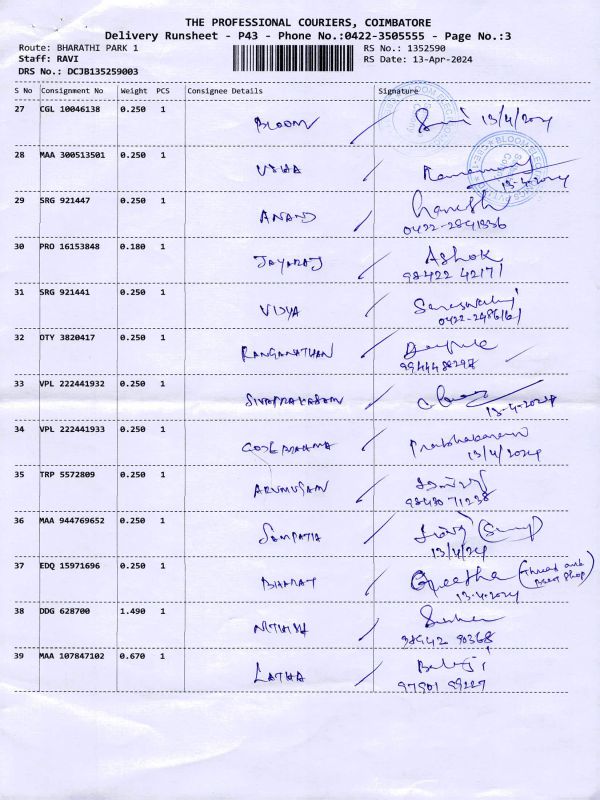 THE PROFESSIONAL COURIERS, COIMBATORE
Delivery Runsheet - P43 - Phone No.:0422-3505555 - Page No.:3
Route: BHARATHI PARK 1 RS No.: 1352590
Staff: RAVI RS Date: 13-Apr-2024
DRS No.: DCJB135259003
S No Consignment No Weight PCS Consignee Details Signature
27 CGL 10046138 0.250 1 BLOOM 13/4/2024
28 MAA 300513501 0.250 1 USHA 13-4-2024
29 SRG 921447 0.250 1 ANAND Ganesh
0422-2841336
30 PRO 16153848 0.180 1 JAYARAJ ASHOK
98422 42171
31 SRG 921441 0.250 1 VIDYA Saraswathi
0422-2486161
32 OTY 3820417 0.250 1 RANGANATHAN
9944488297
33 VPL 222441932 0.250 1 SIVAPRAKASAM 13-4-2024
34 VPL 222441933 0.250 1 Prabhakaran
13/4/2024
35 TRP 5572809 0.250 1 ARUMUGAM
98430 71238
36 MAA 944769652 0.250 1 SAMPATH
13/4/24
37 EDQ 15971696 0.250 1 BHARAT Geetha (Thread and Neet Shop)
13-4-2024
38 DDG 628700 1.490 1 NITHYA
98942 90368
39 MAA 107847102 0.670 1 LATHA Balaji
97901 99227